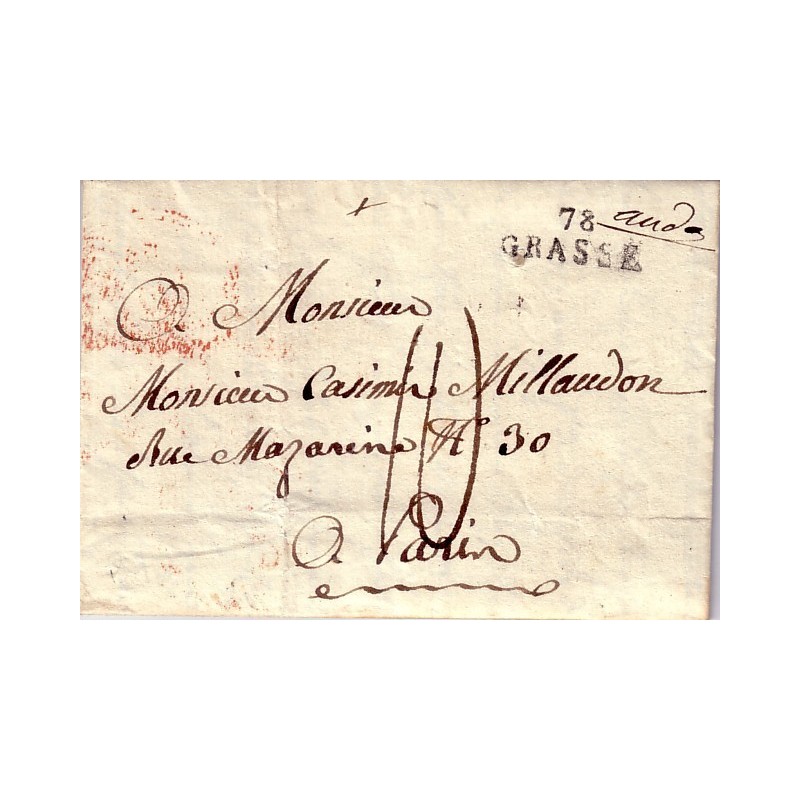 78
GRASSE
A Monsieur
Monsieur Casimir Millaudon
Rue Mazarine N° 30
A Paris